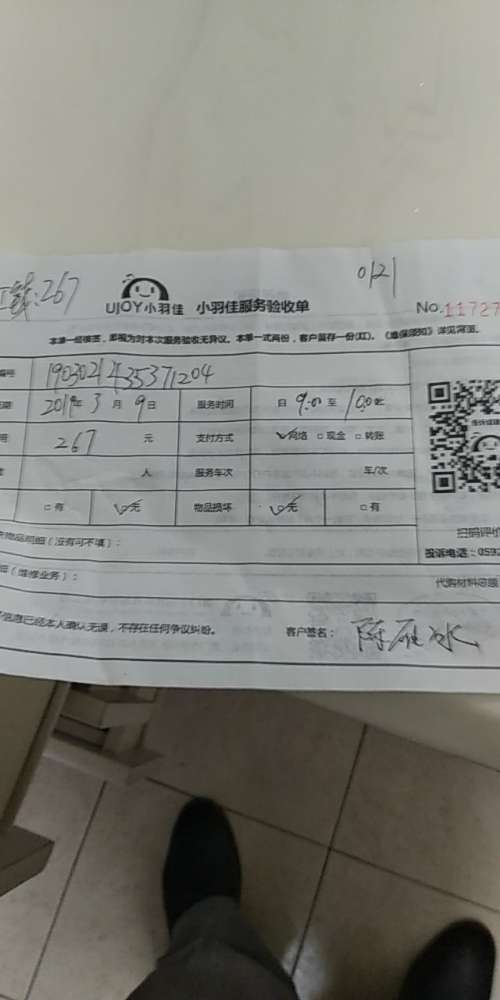 :267
0121
UJOY小羽佳 小羽佳服务验收单 No.11727
本单一经填签，即视为对本次服务验收无异议。本单一式两份，客户留存一份(红)。《维保须知》详见背面。
编号
2019年3月9日 服务时间 日 9:00 至 10:00
267 元 支付方式 ☑网络 □现金 □转账
人 服务车次 车/次
□有 ☑无 物品损坏 ☑无 □有
物品明细（没有可不填）：
扫码评价
投诉电话：0592
（维修业务）： 代购材料总额
信息已经本人确认无误，不存在任何争议纠纷。 客户签名： 陈雁冰